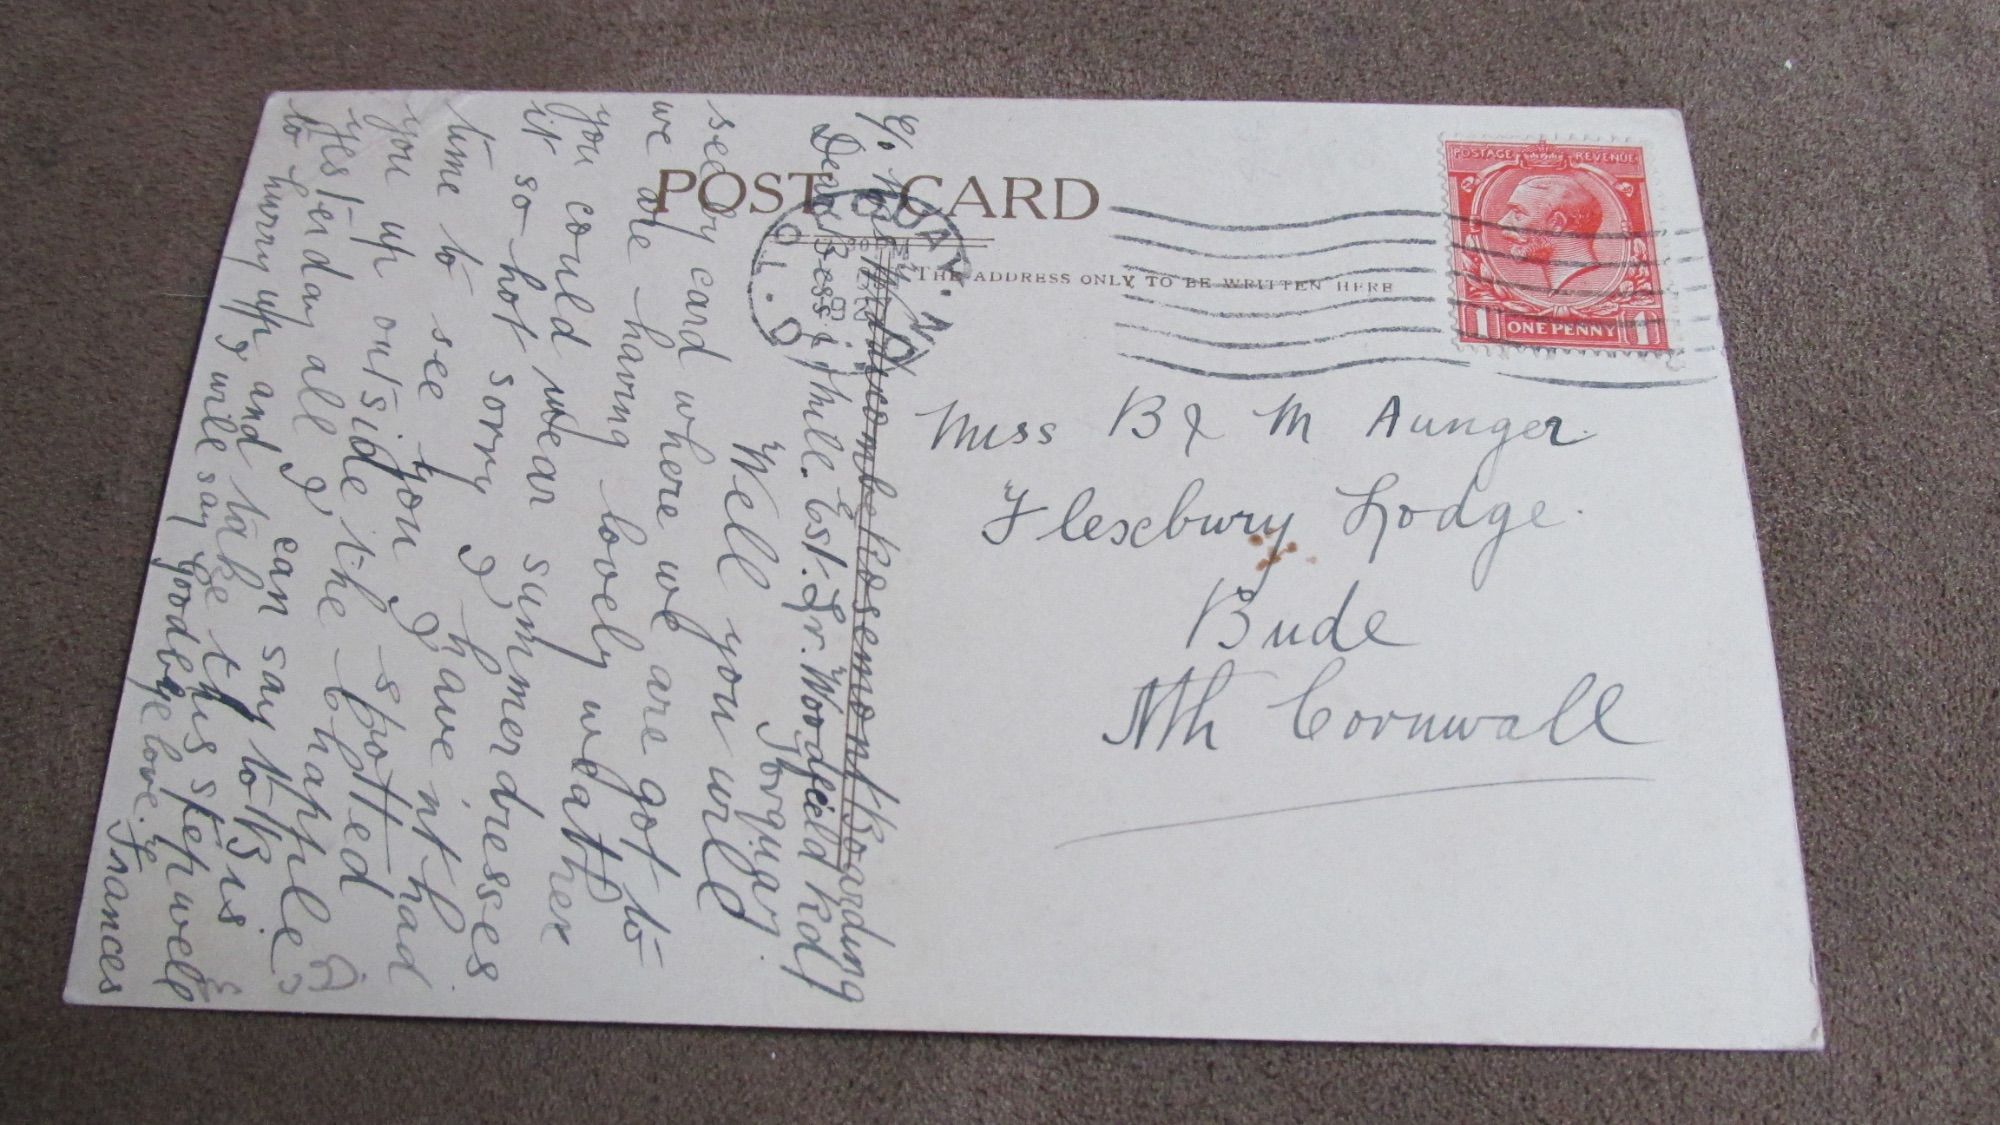 POST CARD
THE ADDRESS ONLY TO BE WRITTEN HERE
POSTAGE REVENUE
1 ONE PENNY 1
Miss B & M Aunger
Flexbury Lodge
Bude
Nth Cornwall
C/o Rosemont Boarding
Est. Lr. Woodfield Rd
Dear Bess &
Torquay
Well you will
see by card where we are got to
we are having lovely weather
you could wear summer dresses
it so hot sorry I have'nt had
time to see you I spotted
you up outside the Chapple
yesterday all I can say to B is
to hurry up and take this step well
I will say goodbye love
Frances